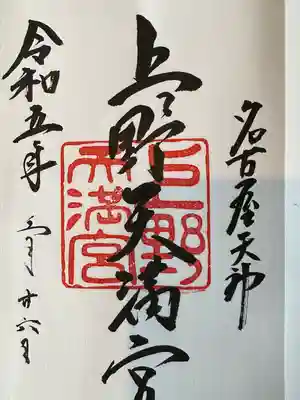 名古屋天神
上野天満宮
上野
天満宮
令和五年
廿六日